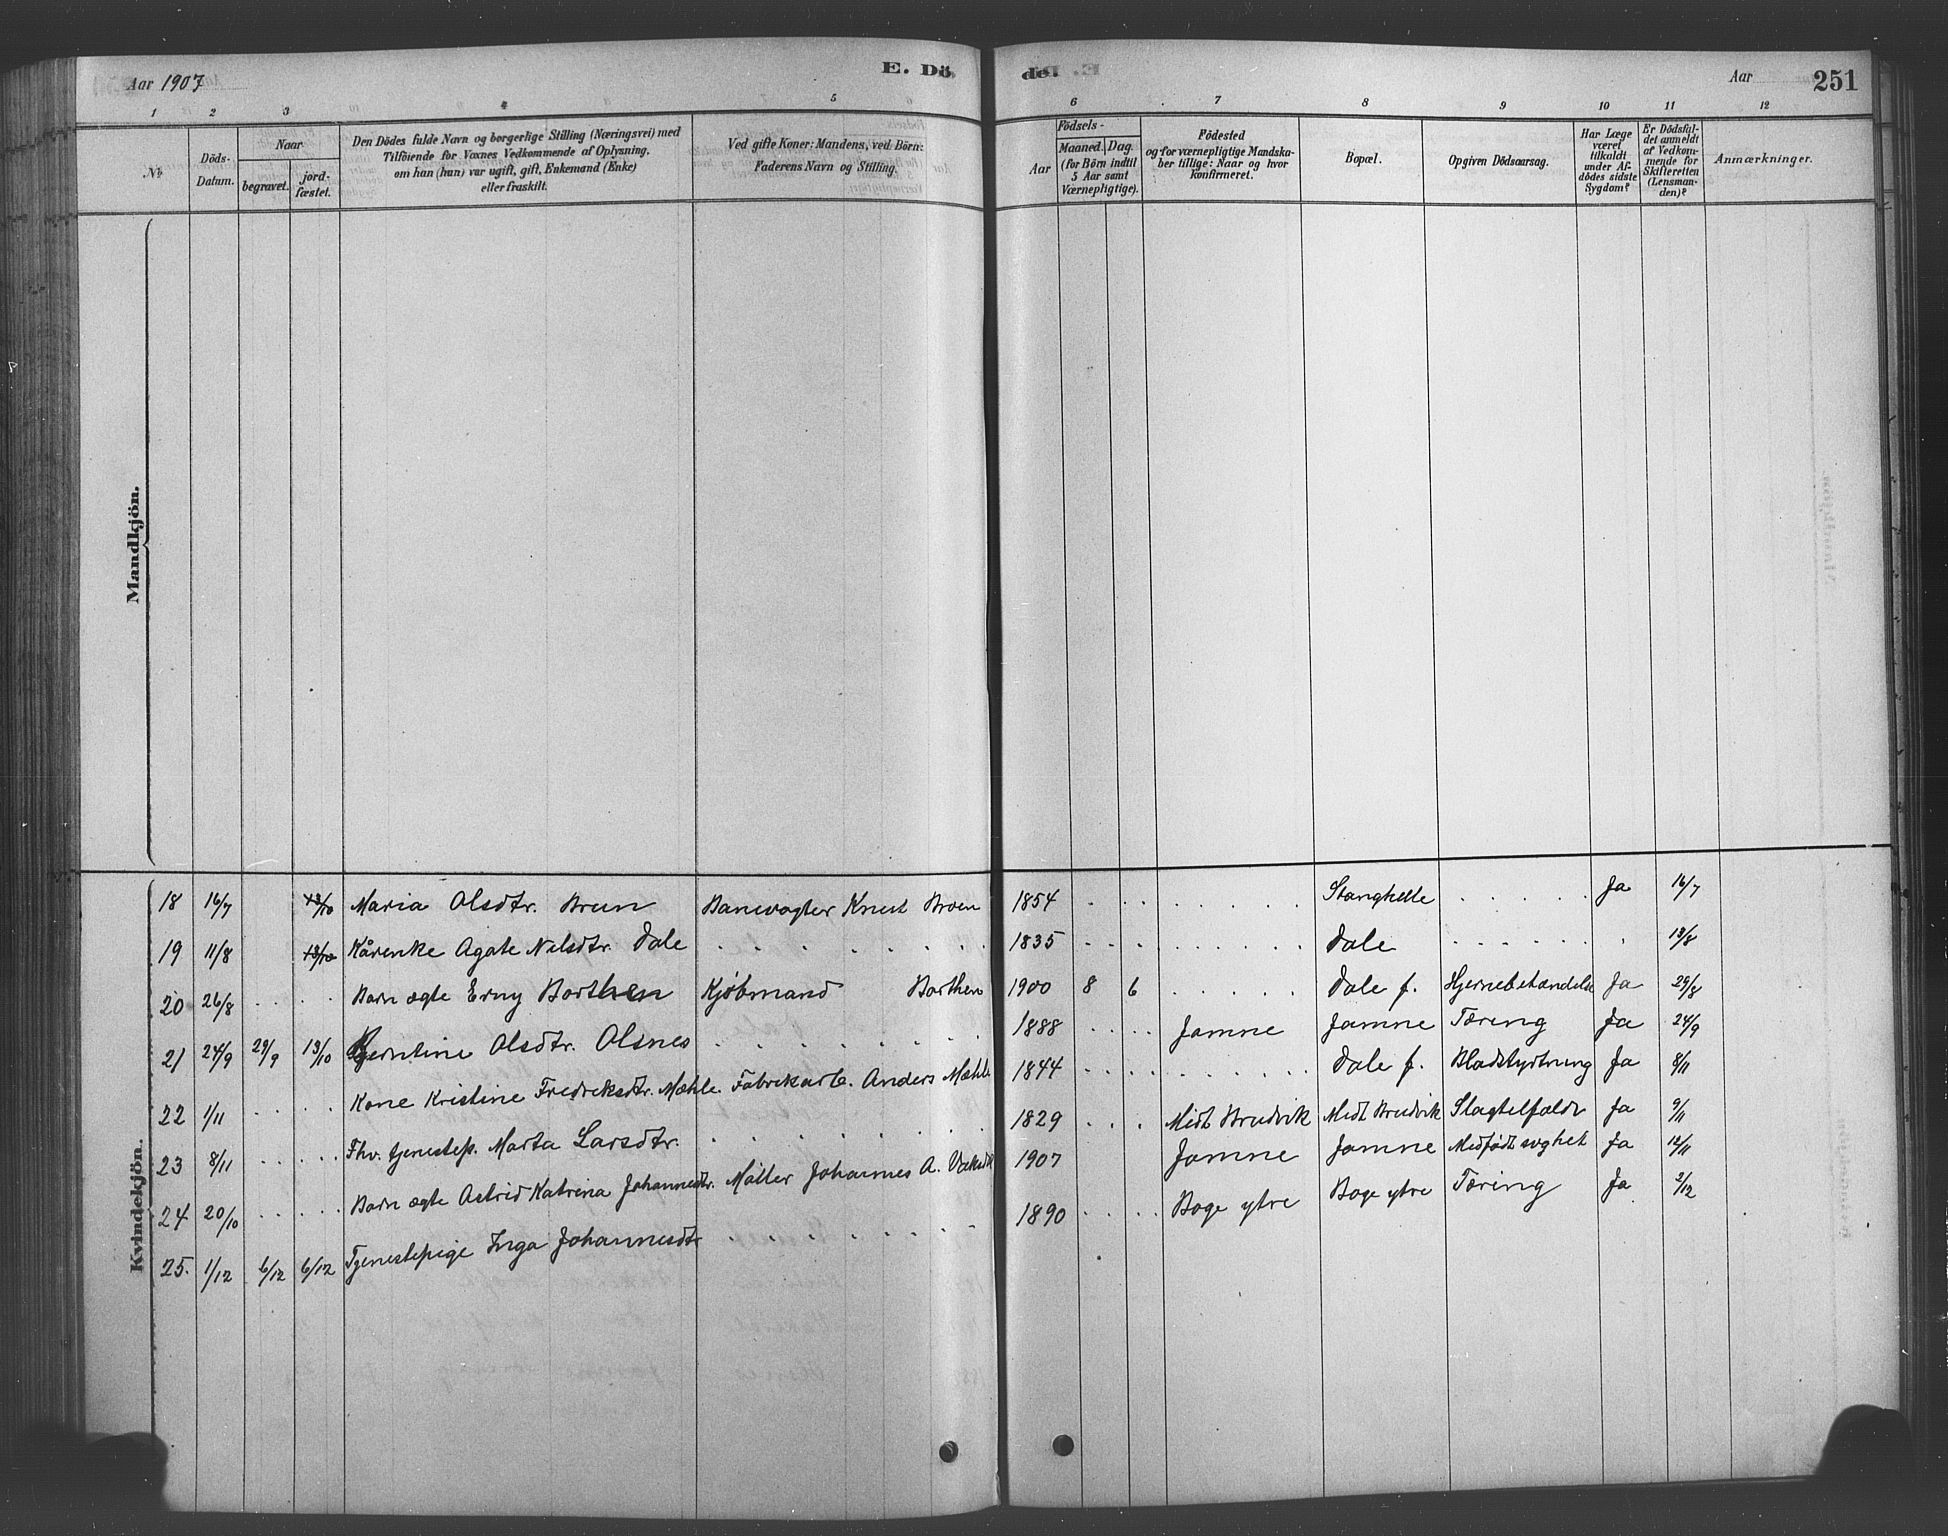 Aar 1907
E. Dö
de.
Aar
251
1 2 3 4 5 6 7 8 9 10 11 12
№
Döds-Datum.
Naar
begravet.
jord-fæstet.
Den Dödes fulde Navn og borgerlige Stilling (Næringsvei) med
Tilföiende for Voxnes Vedkommende af Oplysning,
om han (hun) var ugift, gift, Enkemand (Enke)
eller fraskilt.
Ved gifte Koner: Mandens, ved Börn:
Faderens Navn og Stilling.
Födsels-
Aar
Maaned. Dag.
(for Börn indtil
5 Aar samt
Værnepligtige).
Födested
og for værnepligtige Mandska-
ber tillige: Naar og hvor
konfirmeret.
Bopæl.
Opgiven Dödsaarsag.
Har Læge
været
tilkaldt
under Af-
dödes sidste
Sygdom?
Er Dödsfal-
det anmeldt
af Vedkom-
mende for
Skifteretten
(Lensman-
den)?
Anmærkninger.
Mandkjön.
Kvindekjön.
18 16/7 13/10 Maria Olsdtr. Brun Banevogter Knut Broen 1854 Stanghelle Ja 16/7
19 11/8 13/10 Kårenke Agate Nilsdtr. Dale 1835 Dale 13/8
20 26/8 Barn ægte Erny Borthen Kjøbmand Borthen 1900 8 6 Dale f. Hjernebetændelse Ja 29/8
21 24/9 29/9 13/10 Bjerntine Olsdtr. Olsnes 1888 Jamne Jamne Tæring Ja 24/9
22 1/11 Kone Kristine Fredriksdtr. Mæhle Fabrikarb. Anders Mæhle 1844 Dale f. Blodstyrtning Ja 8/11
23 8/11 Fhv. tjenestep. Marta Larsdtr. 1829 Midt Bruvik Midt Bruvik Slagtilfælde Ja 9/11
24 20/10 Barn ægte Astrid Katrina Johannesdtr. Møller Johannes A. 1907 Jamne Jamne Medfødt svaghet Ja 12/11
25. 1/12 6/12 6/12 Tjenestepige Inga Johannesdtr 1890 Boge ytre Boge ytre Tæring Ja 2/12